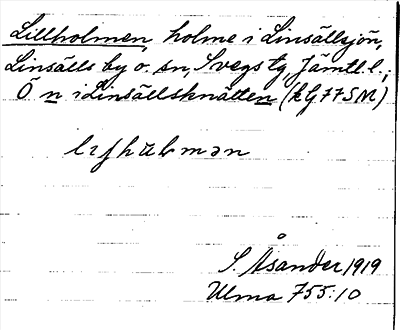 Lillholmen, holme i Linsällsjön,
Linsälls by o. sn, Svegs tg, Jämtl. l.;
Ö n i Linsällsknätten (kG77SM)
S. Åsander 1919
Ulma 755:10